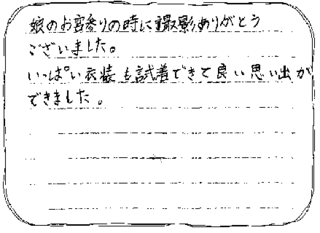 娘のお宮参りの時に撮影ありがとう
ございました。
いっぱい衣装も試着できて良い思い出が
できました。